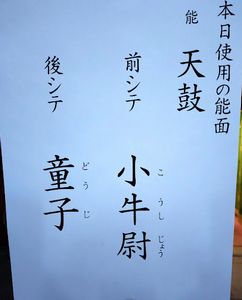 本日使用の能面
能 天鼓
前シテ 小牛尉
こうしじょう
後シテ 童子
どうじ